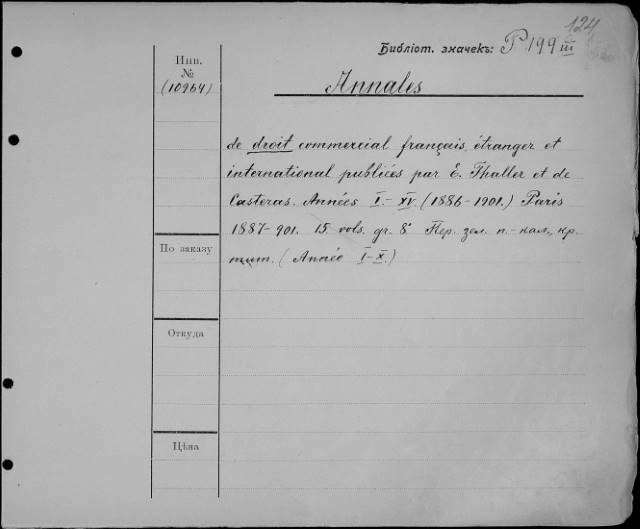 124
Библіот. значекъ: P 199 III
Инв.
№
(10964)
Annales
de droit commercial français, étranger et
international publiées par E. Thaller et de
Casteras. Années I.-XV. (1886-1901.) Paris
1887-901. 15 vols. gr. 8° Пер. зел. п.-кал., кр.
тит. (Année I-X.)
По заказу
Откуда
Цѣна